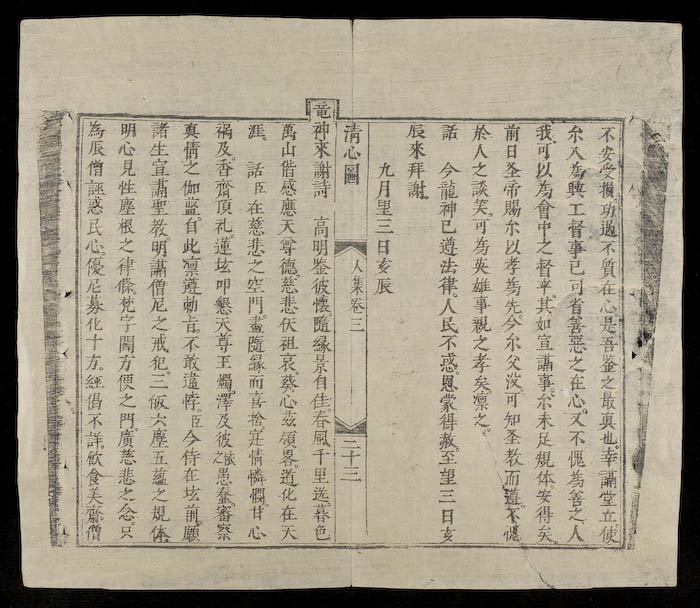 不安受損。功過不質在心。是吾鉴之最真也。幸講堂立。使
尔入為興工督事。已可省善惡之在心。又不愧為善之人
我可以為會中之督乎。其如宣講事。尔未足規体。安得矣。
前日圣帝賜尔以孝為先。今尔父没。可知圣教而遵。不愧
於人之談笑。可為英雄事親之孝矣。凛之。
九月里三日亥辰
話 今龍神已遵法律。人民不惑。恩蒙得赦。至望三日亥
辰來拜謝。
清心圖 人集卷三 三十三
竜神來謝詩 高明鉴彼懷隨緣景自佳。春風千里逃。暮色
萬山偕。感應天尊德。慈悲伏祖哀。葵心茲領畧。道化在天
涯。 話臣在慈悲之空門。盡隨緣而喜捨。寔情憐憫。甘心
禍及。香齋頂礼。蓮坛叩懇天尊王 澤及彼之愚蚕。審察
真情之伽藍。自此凛遵勅旨。不敢違悖。臣今侍在坛前。願
諸生宣講聖教。明講僧尼之戒犯。三皈六塵五蕴之規体
明心見性塵根之律條。梵字開方便之門。廣慈悲之念。只
為辰僧誣惑民心。優尼募化十方。經倡不詳。飲食美齋。僧